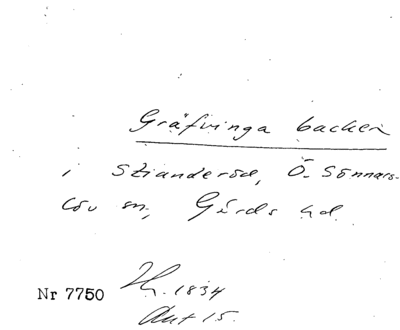 Gräfvinga backen
i Stianderöd, Ö. Sönnars-
löv sn, Gärds hd
Nr 7750 H. 1834
Ant 15